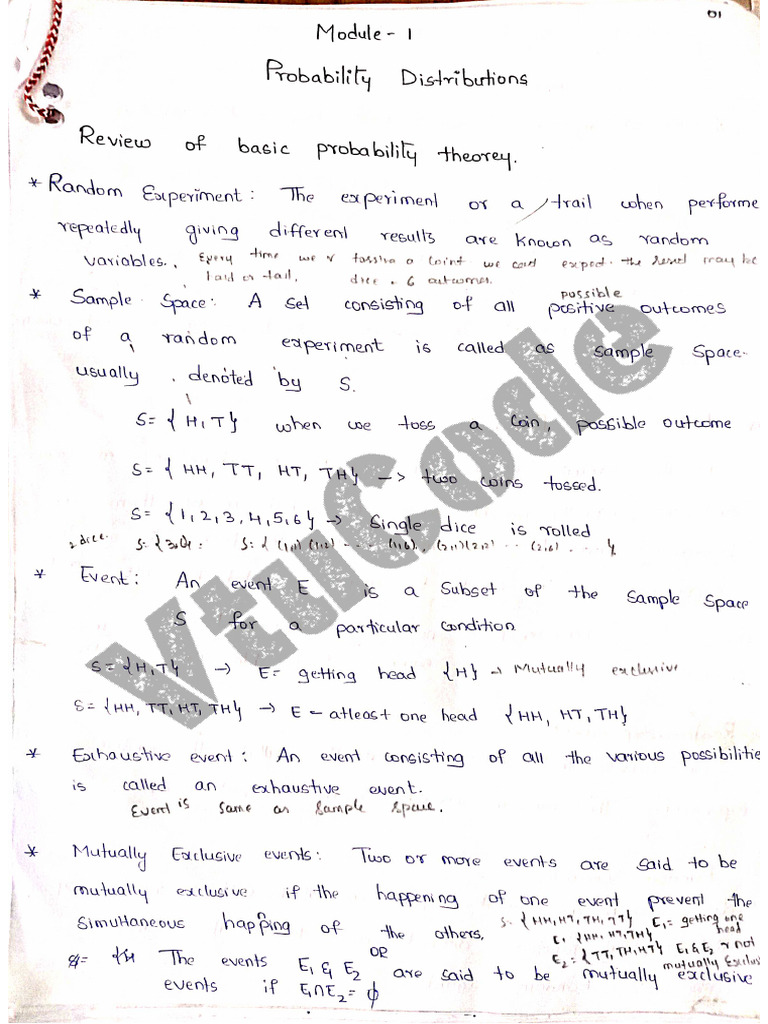 01
Module - 1
Probability Distributions
Review of basic probability theorey.
* Random Experiment : The experiment or a trail when performe
repeatedly giving different results are known as random
variables. Every time we tossing a coint we can't expect the result may be
haid or tail. dice = 6 outcomes.
possible
* Sample Space : A set consisting of all positive outcomes
of a random experiment is called as sample space.
usually denoted by S.
S = { H, T } when we toss a coin, possible outcome
S = { HH, TT, HT, TH } -> two coins tossed.
S = { 1, 2, 3, 4, 5, 6 } -> Single dice is rolled
2 dice. S: { S: { (1,1) (1,2) ... (1,6), (2,1) (2,2) ... (2,6) . . . }
* Event : An event E is a subset of the sample space
S for a particular condition
S = { H, T } -> E = getting head { H } -> Mutually exclusive
S = { HH, TT, HT, TH } -> E - atleast one head { HH, HT, TH }
* Exhaustive event : An event consisting of all the various possibilitie
is called an exhaustive event.
Event is same as sample space.
* Mutually Exclusive events : Two or more events are said to be
mutually exclusive if the happening of one event prevent the
simultaneous happning of the others.
S: { HH, HT, TH, TT } E1 = getting one head
E1 { HH, HT, TH }
E2 = { TT, TH, HT } E1 & E2 r not
mutually Exclus
OR
The events E1 & E2 are said to be mutually exclusive
events if E1 ∩ E2 = ϕ
VtuCode